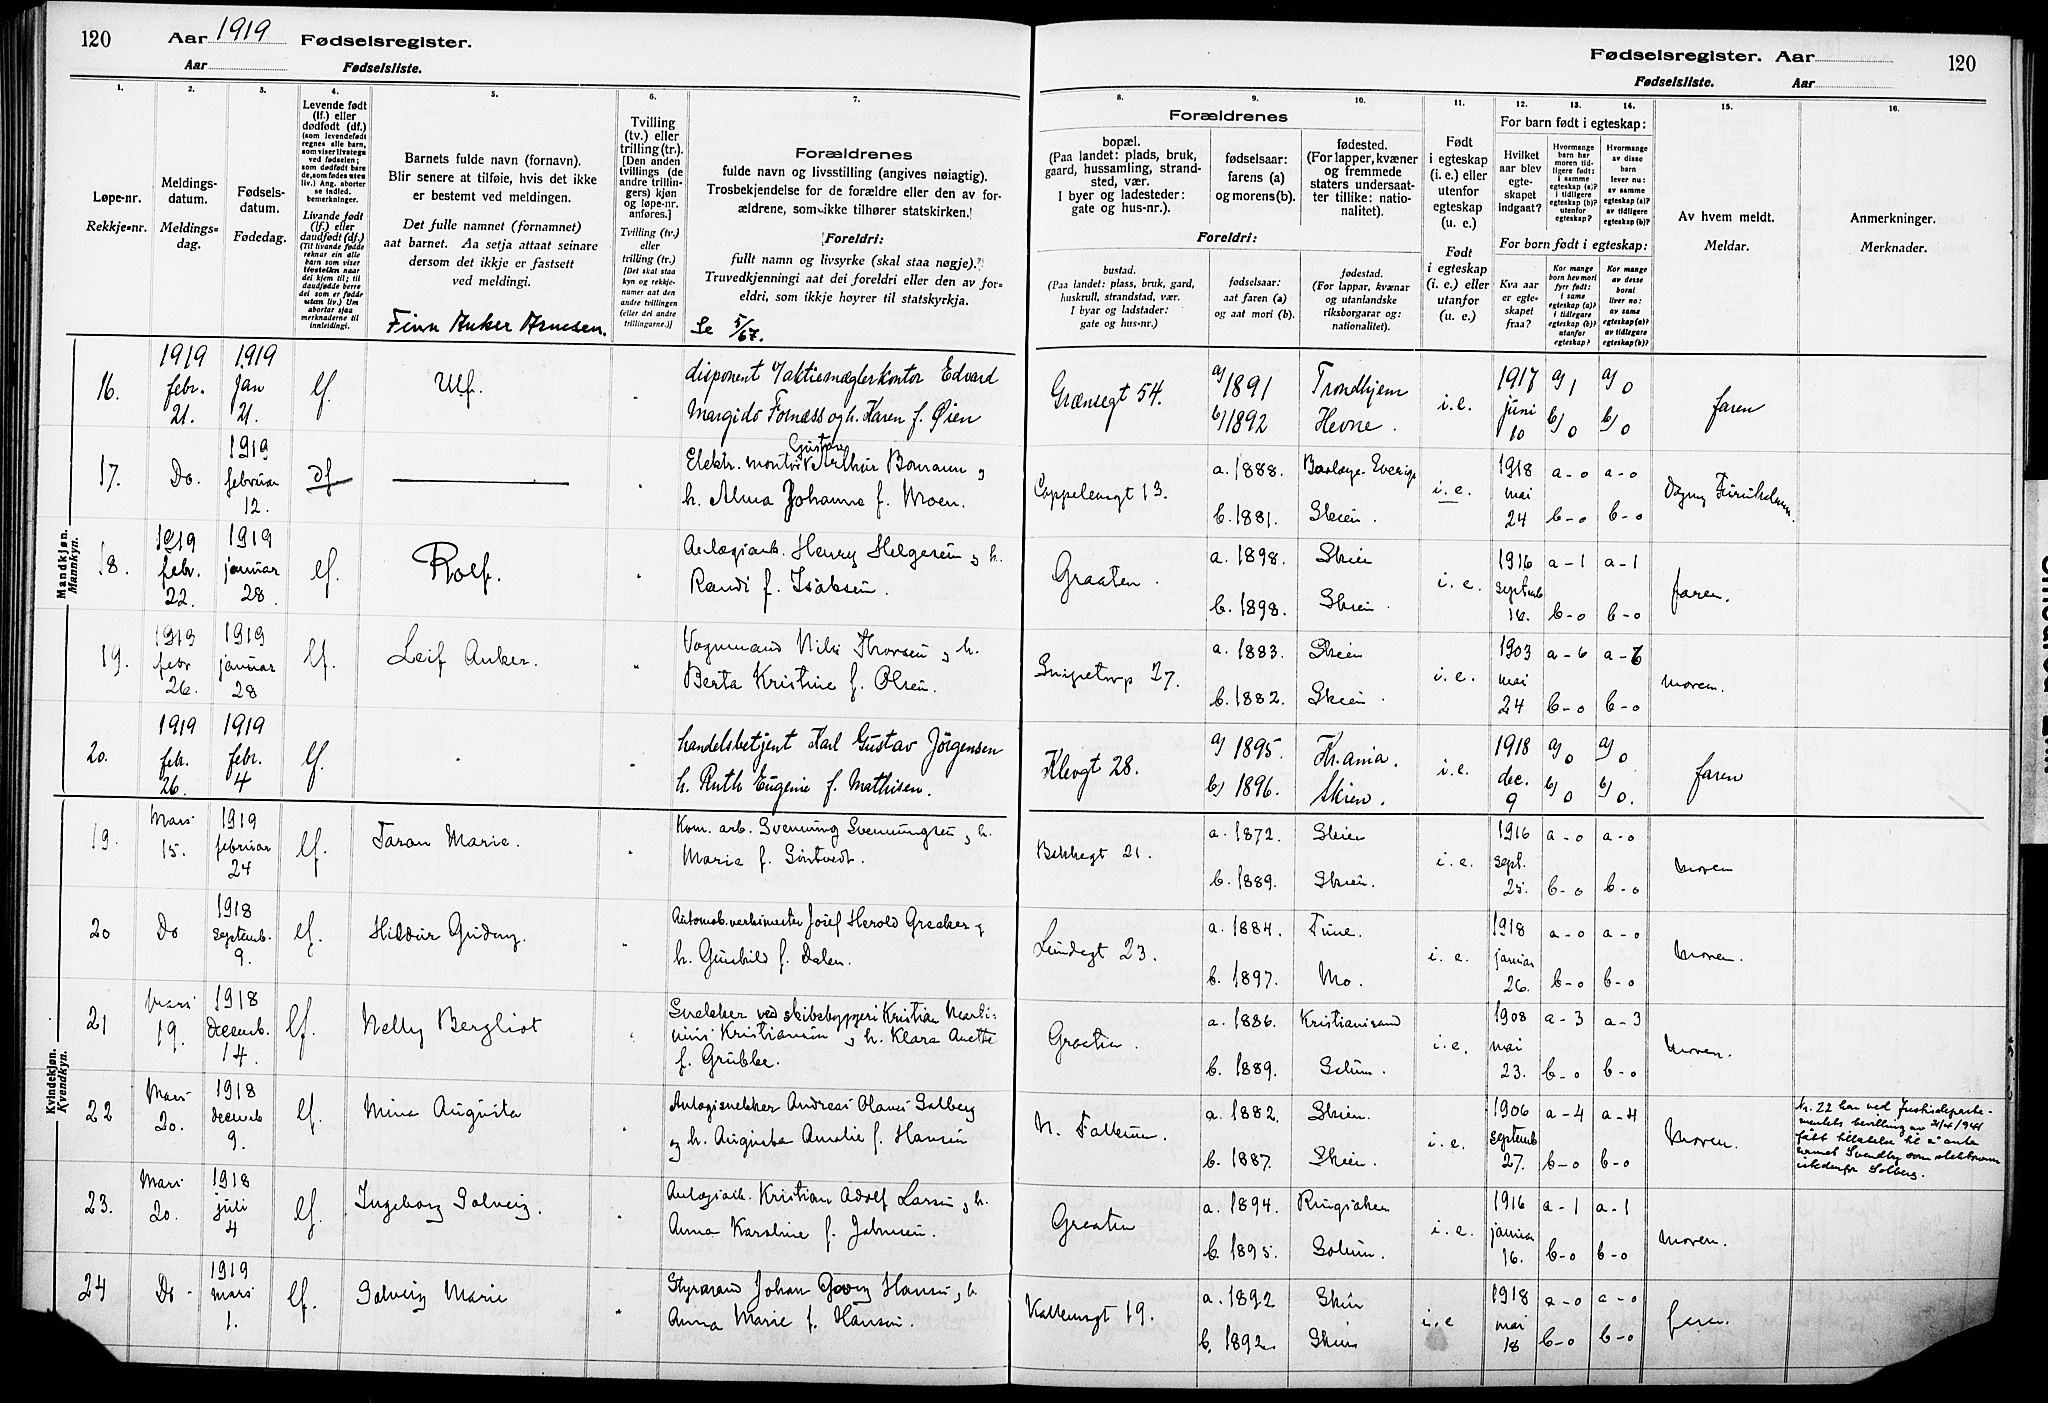 120 Aar 1919 Fødselsregister.
Aar Fødselsliste.
Fødselsregister. Aar 120
Fødselsliste. Aar
1. 2. 3. 4. 5. 6. 7. 8. 9. 10. 11. 12. 13. 14. 15. 16.
Løpe-nr.
Rekkje-nr.
Meldings-
datum.
Meldings-
dag.
Fødsels-
datum.
Fødedag.
Levende født
(lf.) eller
dødfødt (df.)
Livande født
(lf.) eller
daudfødt (df.)
Barnets fulde navn (fornavn).
Blir senere at tilføie, hvis det ikke
er bestemt ved meldingen.
Det fulle namnet (fornamnet)
aat barnet. Aa setja attaat seinare
dersom det ikkje er fastsett
ved meldingi.
Finn Anker Arnesen.
Tvilling
(tv.) eller
trilling (tr.).
[Den anden
tvillings (de
andre trillin-
gers) kjøn
og løpe-nr.
anføres.]
Tvilling (tv.)
eller
trilling (tr.)
[Det skal staa
kyn og rekkje-
numer aat den
andre tvillingen
(eller dei andre
trillingarne.)]
Forældrenes
fulde navn og livsstilling (angives nøiagtig).
Trosbekjendelse for de forældre eller den av for-
ældrene, som ikke tilhører statskirken.
Foreldri:
fullt namn og livsyrke (skal staa nøgje).
Truvedkjenningi aat dei foreldri eller den av for-
eldri, som ikkje høyrer til statskyrkja.
Se 5/67.
Forældrenes
bopæl.
(Paa landet: plads, bruk,
gaard, hussamling, strand-
sted, vær.
I byer og ladesteder:
gate og hus-nr.).
fødselsaar:
farens (a)
og morens (b).
fødested.
(For lapper, kvæner
og fremmede
staters undersaat-
ter tillike: natio-
nalitet).
Foreldri:
bustad.
(Paa landet: plass, bruk, gard,
huskrull, strandstad, vær.
I byar og ladstader:
gate og hus-nr.)
fødselsaar:
aat faren (a)
og aat mori (b).
fødestad.
(For lappar, kvænar
og utanlandske
riksborgarar og:
nationalitet).
Født
i egteskap
(i. e.) eller
utenfor
egteskap
(u. e.)
Født
i egteskap
(i. e.) eller
utanfor
(u. e.)
For barn født i egteskap:
Hvilket
aar blev
egte-
skapet
indgaat?
For born født i egteskap:
Kva aar
er egte-
skapet
fraa?
Av hvem meldt.
Meldar.
Anmerkninger.
Merknader.
Mandkjøn.
Mannkyn.
16. 1919 febr. 21. 1919 Jan 21. lf. Ulf. disponent v/aktiemæglerkontor Edvard
Margido Fornæss og h. Karen f. Øien
Grænsegt 54. a) 1891 Trondhjem i.e. 1917 juni 10 a) 1 a) 0 faren
b) 1892 Hevne. b) 0 b) 0
17. Do. 1919 februar 12. df Elektr. montør Gustav Arthur Bomann og
h. Alma Johanne f. Moen.
Cappelensgt 13. a. 1888. i.e. 1918 mai 24 a-0 a-0 Dagny
b. 1881. Skien. b-0 b-0
18. 1919 febr. 22. 1919 januar 28. lf. Rolf. Anlægsarb. Henry Helgesen og h.
Randi f. Isaksen.
Graaten. a. 1898. Skien i.e. 1916 septemb 16. a-1 a-1 faren.
b. 1898. Skien. b-0 b-0
19. 1919 febr 26. 1919 januar 28 lf. Leif Anker. Vognmand Nils Thorsen og h.
Berta Kristine f. Olsen.
Snipetorp 27. a. 1883. Skien i.e. 1903 mai 24 a-6 a-6 moren.
b. 1882. Skien. b-0 b-0
20. 1919 feb. 26. 1919 febr. 4 lf. handelsbetjent Karl Gustav Jörgensen
h. Ruth Eugenie f. Mathisen.
Klevgt 28. a) 1895. Kr.ania. i.e. 1918 dec. 9 a) 0 a) 0 faren
b) 1896. Skien. b) 0 b) 0.
Kvindekjøn.
Kvendkyn.
19. Mars 15. 1919 februar 24 lf. Taran Marie. Kom. arb. Svenning Svenningsen og h.
Marie f. Sörtvedt.
Bekkegt 21. a. 1872. Skien i.e. 1916 sept. 25. a-0 a-0 moren
b. 1889. Skien. b-0 b-0
20 Do 1918 Septemb. 9. lf. Hildur Gudny. Automob.verksmester Josef Herold Greaker og
h. Gunhild f. Dalen.
Lundegt 23. a. 1884. Tune. i.e. 1918 januar 26. a-0 a-0 moren.
b. 1897. Mo. b-0 b-0
21 Mars 19. 1918 Decemb. 14. lf. Nelly Bergliot Snekker ved skibsbyggeri Kristian Marti-
nius Kristiansen og h. Klara Anette
f. Grubbe.
Graaten. a. 1886. Kristiansand i.e. 1908 mai 23. a-3 a-3 moren.
b. 1889. Solum. b-0 b-0
22 Mars 20. 1918 Decemb 9. lf. Mina Augusta Anlægssnekker Andreas Olaves Solberg
og h. Augusta Amalie f. Hansen
N. Falkum. a. 1882. Skien. i.e. 1906 septemb 27. a-4 a-4 moren.
b. 1887. Skien. b-0 b-0
Nr. 22 har ved Justisdeparte-
mentets bevilling av 21/4 1941
fått tillatelse til å anta
navnet Svendby som slektsnavn
istedenfor Solberg.
23. Mars 20. 1918 juli 4 lf. Ingeborg Solveig. Anlægsarb. Kristian Adolf Larsen og h.
Anna Karoline f. Johnsen.
Graaten a. 1894. Ringsaker i.e. 1916 januar 16. a-1 a-1 moren.
b. 1895. Solum. b-0 b-0
24 Do - 1919 Mars 1. lf. Solveig Marie Styrmand Johan Georg Hansen og h
Anna Marie f. Hansen.
Kattemsgt 19. a. 1892 Skien i.e 1918 mai 18 a-0 a-0 faren.
b. 1892. Skien b-0 b-0